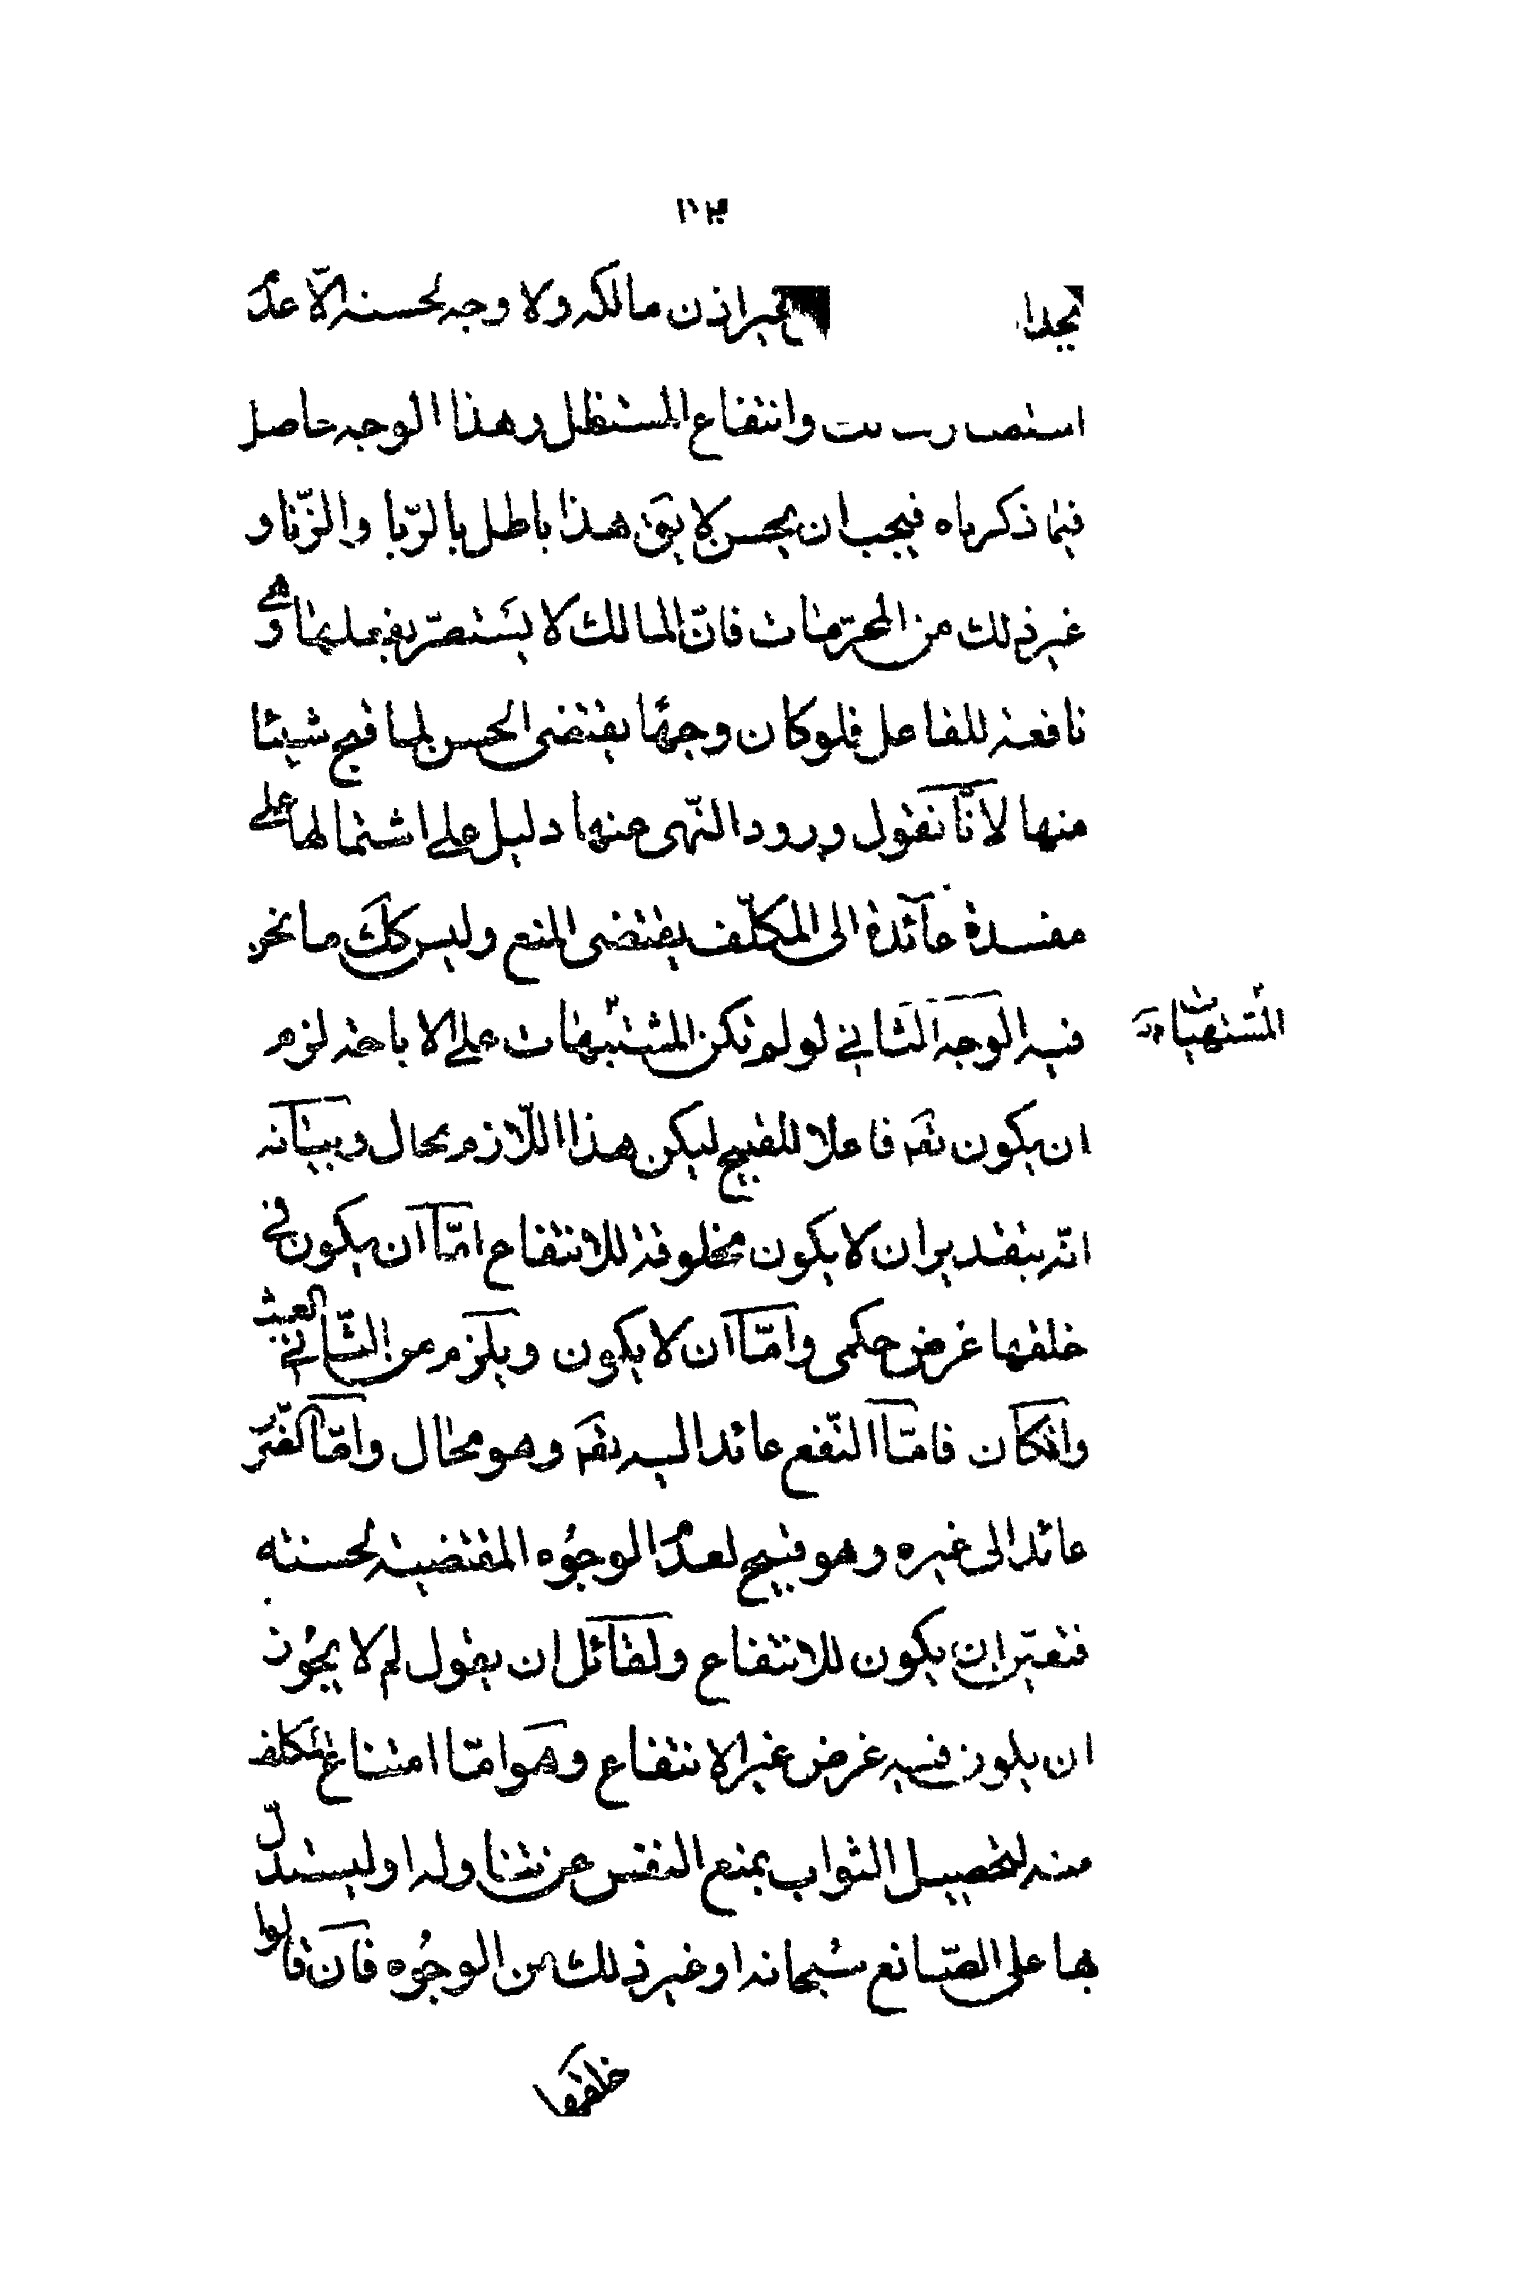 بجدا بغير اذن مالكه ولا وجه لحسنه الا عدم
وانتفاع المستظل وهذا الوجه حاصل
فيما ذكرناه فيجب ان يحسن لا يق هذا باطل بالربا والزنا و
غير ذلك من المحرمات فان المالك لا يستضر بفعلها وهى
نافعة للفاعل فلو كان وجها يقتضى الحسن لما قبح شيئا
منها لانا نقول ورود النهى عنها دليل على اشتمالها على
مفسدة عائدة الى المكلف يقتضى المنع وليس كك ما نحن
فيه الوجه الثانى لو لم تكن المشتبهات على الاباحة لزم
المشتهيات
ان يكون تقم فاعلا للقبيح ليكن هذا اللازم محال وبيانه
انه بتقدير ان لا يكون مخلوقة للانتفاع اما ان يكون فى
خلقها غرض حكمى واما ان لا يكون ويلزم من الثانى العبث
وانكان فاما النفع عائد اليه تقم وهو محال واما الضرر
عائد الى غيره وهو قبيح لعدم الوجوه المقتضية لحسنه
فتعين ان يكون للانتفاع ولقائل ان يقول لم لا يجوز
ان يكون فيه غرض غير الانتفاع وهو اما امتناع المكلف
منه لتحصيل الثواب بمنع النفس عن تناوله او ليستدل
بها على الصانع سبحانه او غير ذلك من الوجوه فان قالوا
خلقها